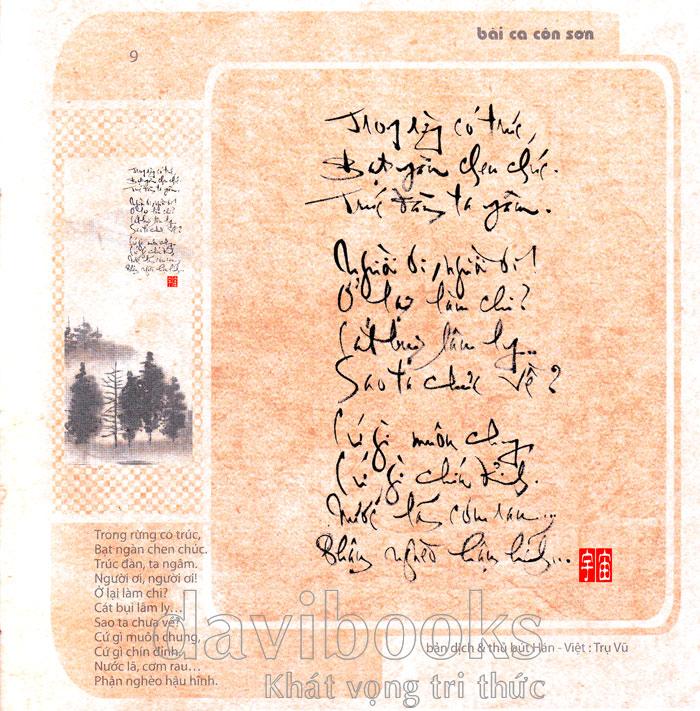 bài ca côn sơn
9
Trong rừng có trúc,
Bạt ngàn chen chúc.
Trúc đàn, ta ngâm.
Người ơi, người ơi!
Ở lại làm chi?
Cát bụi lâm ly...
Sao ta chưa về?
Cứ gì muôn chung,
Cứ gì chín đỉnh.
Nước lã, cơm rau...
Phận nghèo hậu hĩnh...
宙宇
Trong rừng có trúc,
Bạt ngàn chen chúc.
Trúc đàn, ta ngâm.
Người ơi, người ơi!
Ở lại làm chi?
Cát bụi lâm ly...
Sao ta chưa về?
Cứ gì muôn chung,
Cứ gì chín đỉnh.
Nước lã, cơm rau...
Phận nghèo hậu hĩnh.
bản dịch & thủ bút Hán - Việt : Trụ Vũ
davibooks
Khát vọng tri thức